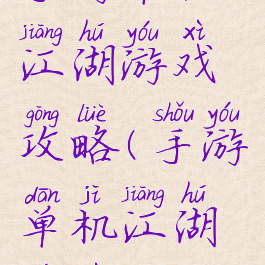 jiāng hú yóu xì
江湖游戏
gōng lüè shǒu yóu
攻略(手游
dān jī jiāng hú
单机江湖